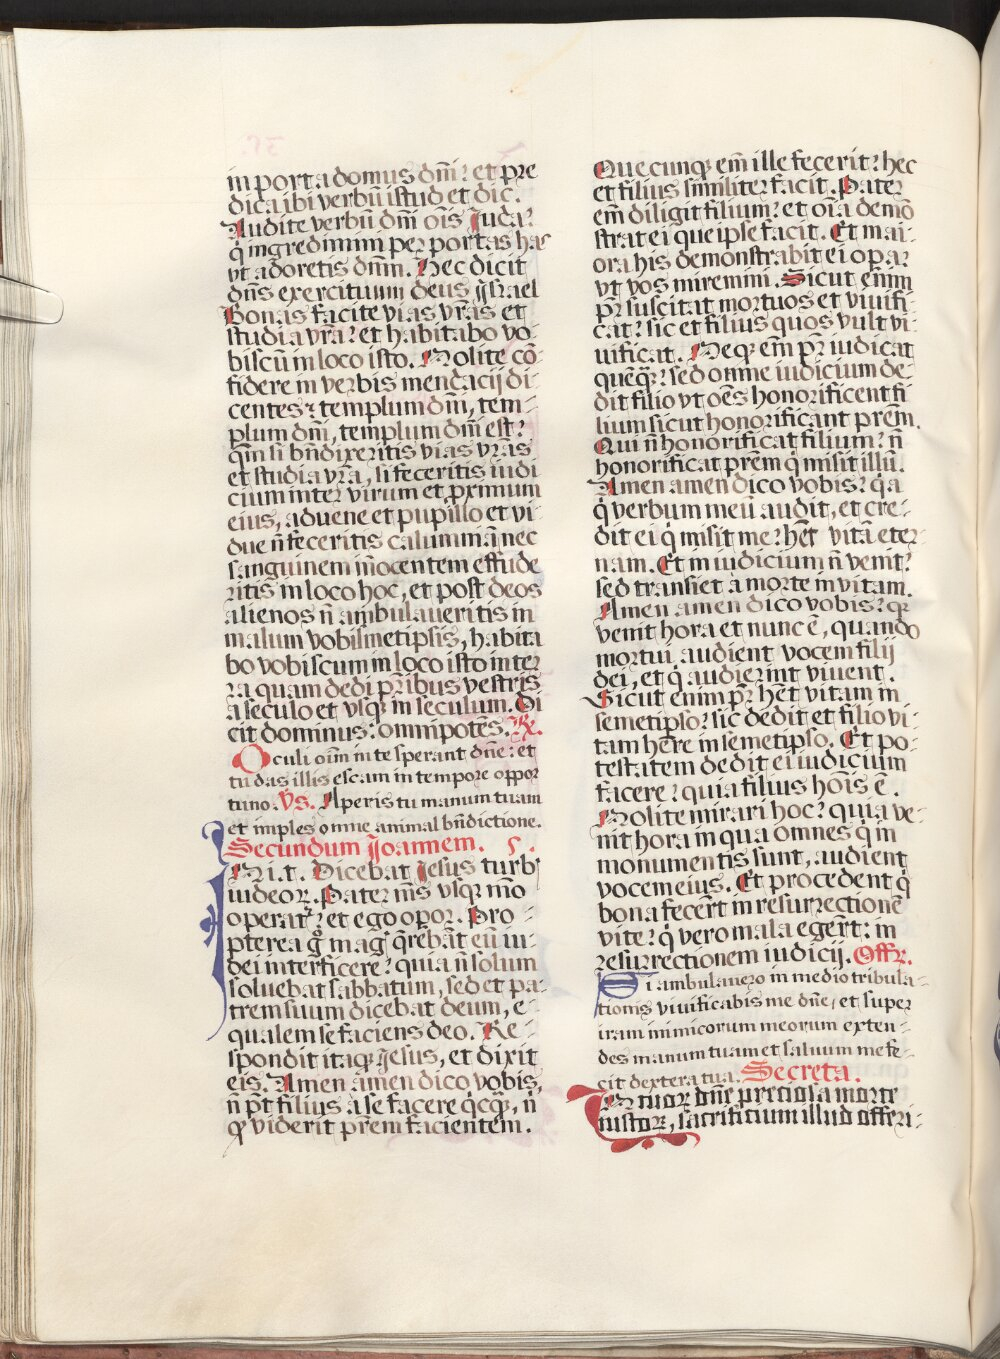 in porta domus dn̄i: et pre
dica ibi verbū istud et dic.
Audite verbū dn̄i oīs Juda:
q̇ ingredimini per portas has
vt adoretis dn̄m. Hec dicit
dn̄s exercituum deus isrl̄rael
Bonas facite vias vr̄as et
studia vr̄a: et habitabo vo-
biscū in loco isto. Nolite cō-
fidere in verbis mendacij di-
centes: templum dn̄i, tem-
plum dn̄i, templum dn̄i est:
qm̄ si bn̄dixeritis vias vr̄as
et studia vr̄a, si feceritis iudi
cium inter virum et pximum
eius, aduene et pupillo et vi-
due n̄ feceritis calumniā, nec
sanguinem īnocentem effude
ritis in loco hoc, et post deos
alienos n̄ ambulaueritis in
malum vobismetipsis, habita
bo vobiscum in loco isto in ter
ra quam dedi pr̄ibus vestris
a seculo et vsqꝫ in seculum. Di
cit dominus: omnipotēs. R.
Oculi oīm in te sperant dn̄e: et
tu das illis escam in tempore oppor
tuno. Vs. Aperis tu manum tuam
et imples omne animal bn̄dictione.
Secundum Joannem. 5.
N i.t. Dicebat Jesus turb'
iudeoꝝ. Pater m̄s vsqꝫ mō
operat᷑: et ego opoꝝ. Pro-
pterea g̊ mag' q̄rebāt eū iu-
dei interficere: quia n̄ solum
soluebat sabbatum, sed et pa-
trem suum dicebat deum, e-
qualem se faciens deo. Re-
spondit itaqꝫ Jesus, et dixit
eis. Amen amen dico vobis,
n̄ pt̄ filius a se facere q̇cqꝫ, n̄
qꝫ viderit pr̄em facientem.
Quecunqꝫ em̄ ille fecerit: hec
et filius similiter facit. Pater
em̄ diligit filium: et oīa demō
strat ei que ipse facit. Et mai-
ora his demonstrabit ei opa:
vt vos miremini. Sicut enim
pr̄ suscitat mortuos et viuifi-
cat: sic et filius quos vult vi-
uificat. Neqꝫ em̄ pr̄ iudicat
quēqꝫ: sed omne iudicium de-
dit filio vt oēs honorificent fi
lium sicut honorificant prēm.
Qui n̄ honorificat filium: n̄
honorificat prēm q̇ misit illū.
Amen amen dico vobis: q̇a
q̇ verbum meū audit, et cre-
dit ei q̇ misit me: hēt vitā eter-
nam. Et in iudicium n̄ venit:
sed transiet a morte in vitam.
Amen amen dico vobis: qꝫ
venit hora et nunc ē, quando
mortui audient vocem filij
dei, et q̇ audierint viuent.
Sicut enim pr̄ hēt vitam in
semetipso: sic dedit et filio vi-
tam hēre in semetipso. Et po-
testatem dedit ei iudicium
facere: quia filius hoīs ē.
Nolite mirari hoc: quia ve-
nit hora in qua omnes q̇ in
monumentis sunt, audient
vocem eius. Et procedent q̇
bona fecer̄t in resurrectionē
vite: q̇ vero mala eger̄t: in
resurrectionem iudicij. Offr.
Si ambulauero in medio tribula-
tionis viuificabis me dn̄e, et super
iram inimicorum meorum exten-
des manum tuam et saluum me fe-
cit dextera tua. Secreta.
In tuoꝝ dn̄e preciosa morte
iustoꝝ, sacrificium illud offeri-